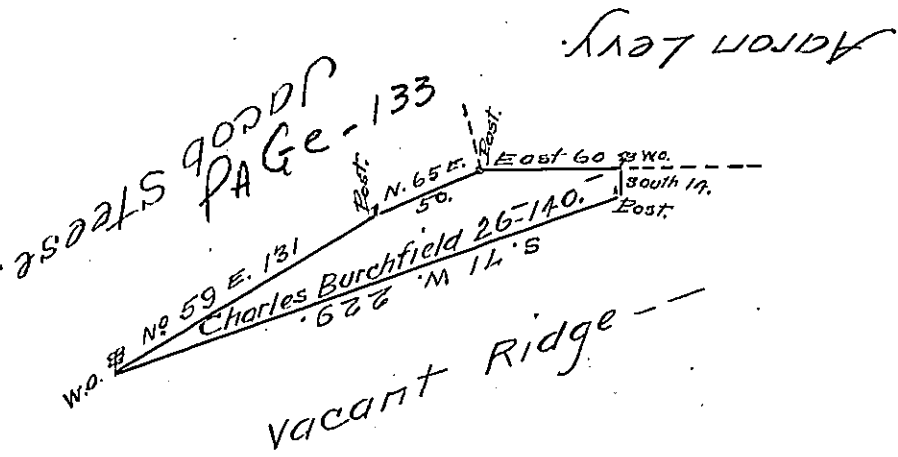 Aaron Levy.
Jacob Steese.
PAGe - 133
Post.
Post.
N. 65 E.
50.
East 60
W.O.
South 14.
Post.
No 59 E. 131
Charles Burchfield 26-140.
S. 71 W. 229.
W.O.
Vacant Ridge